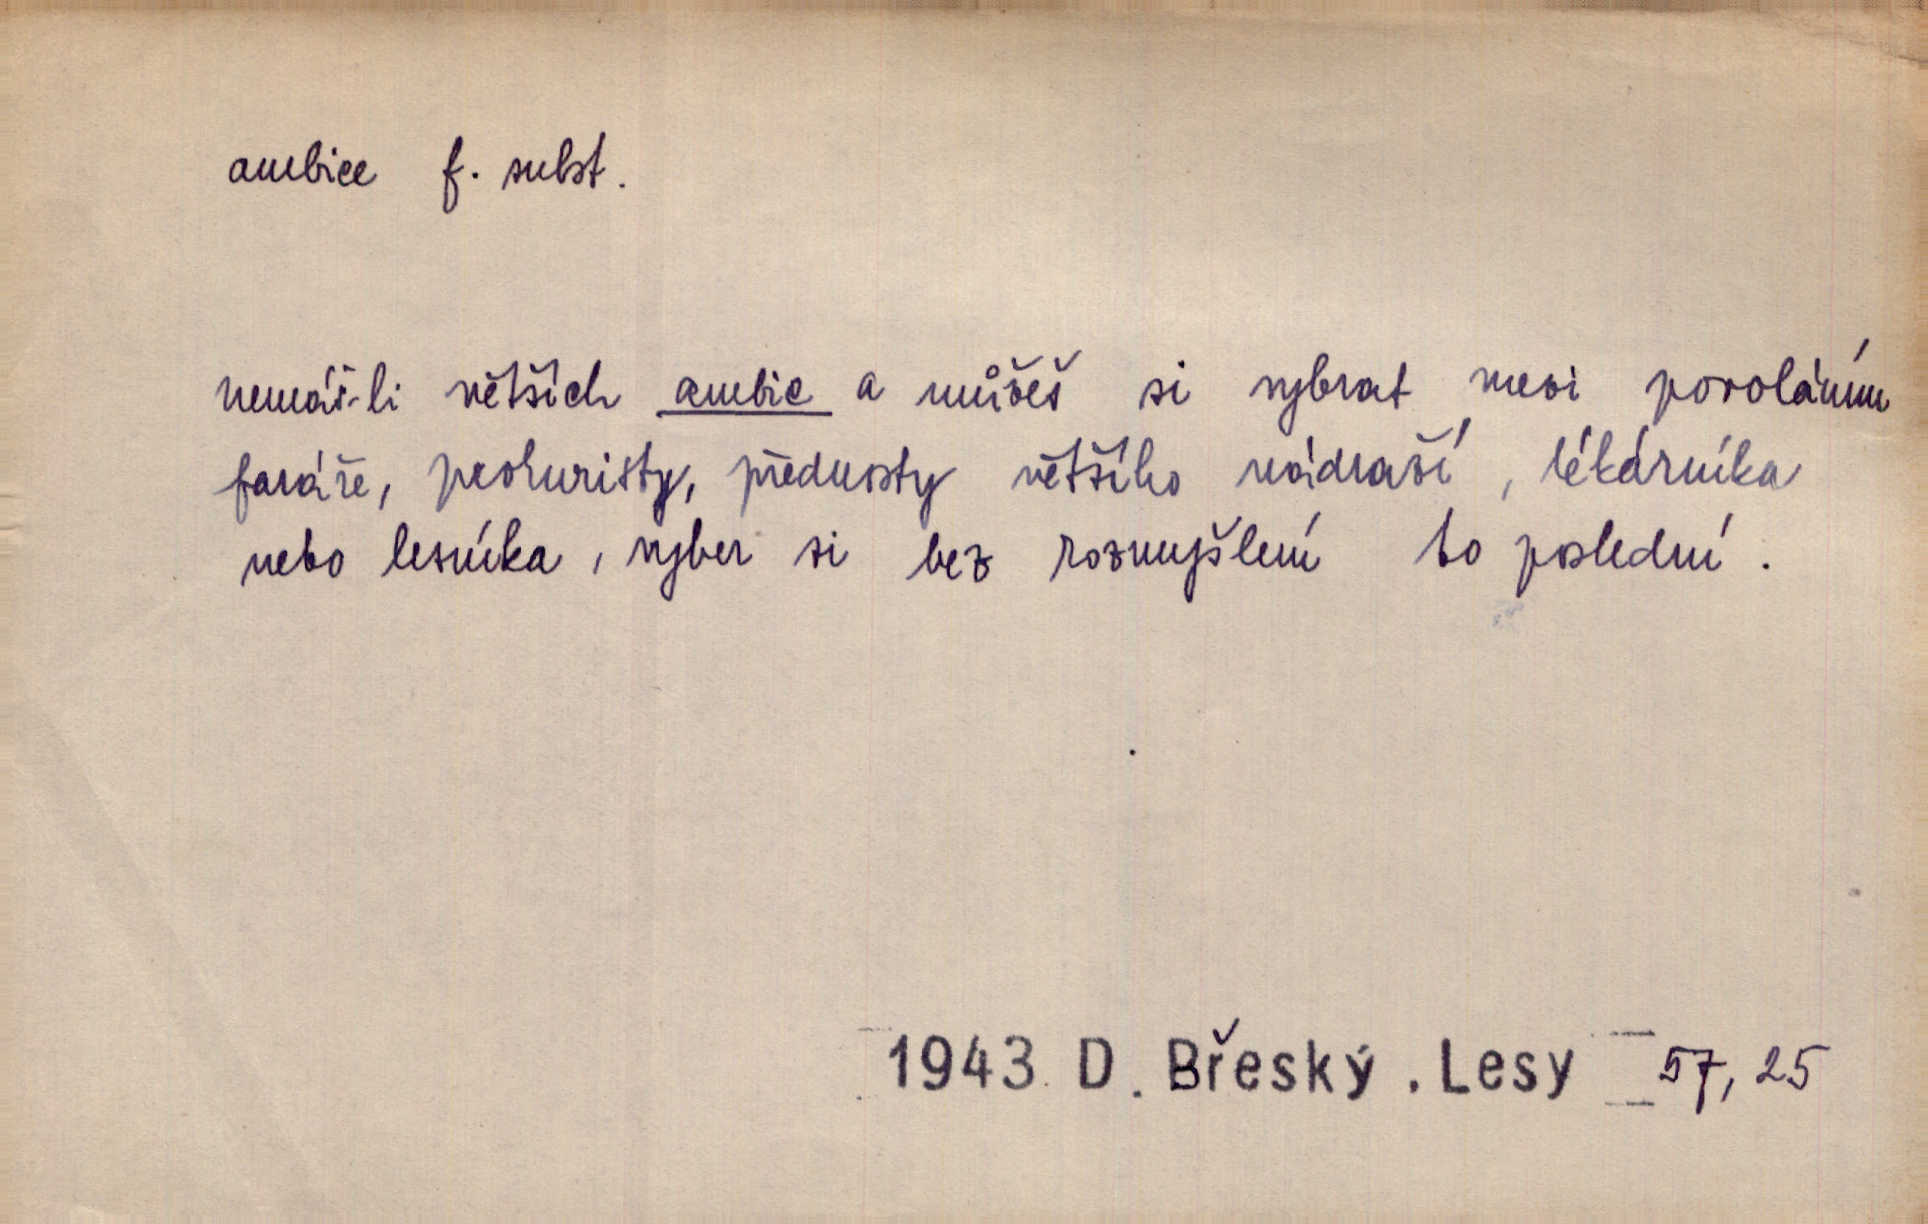 ambice f. subst.
nemáš-li větších ambic a můžeš si vybrat mezi povoláním
faráře, prokuristy, přednosty většího nádraží, lékárníka
nebo lesníka, vyber si bez rozmyšlení to poslední.
1943 D. Břeský. Lesy 57, 25